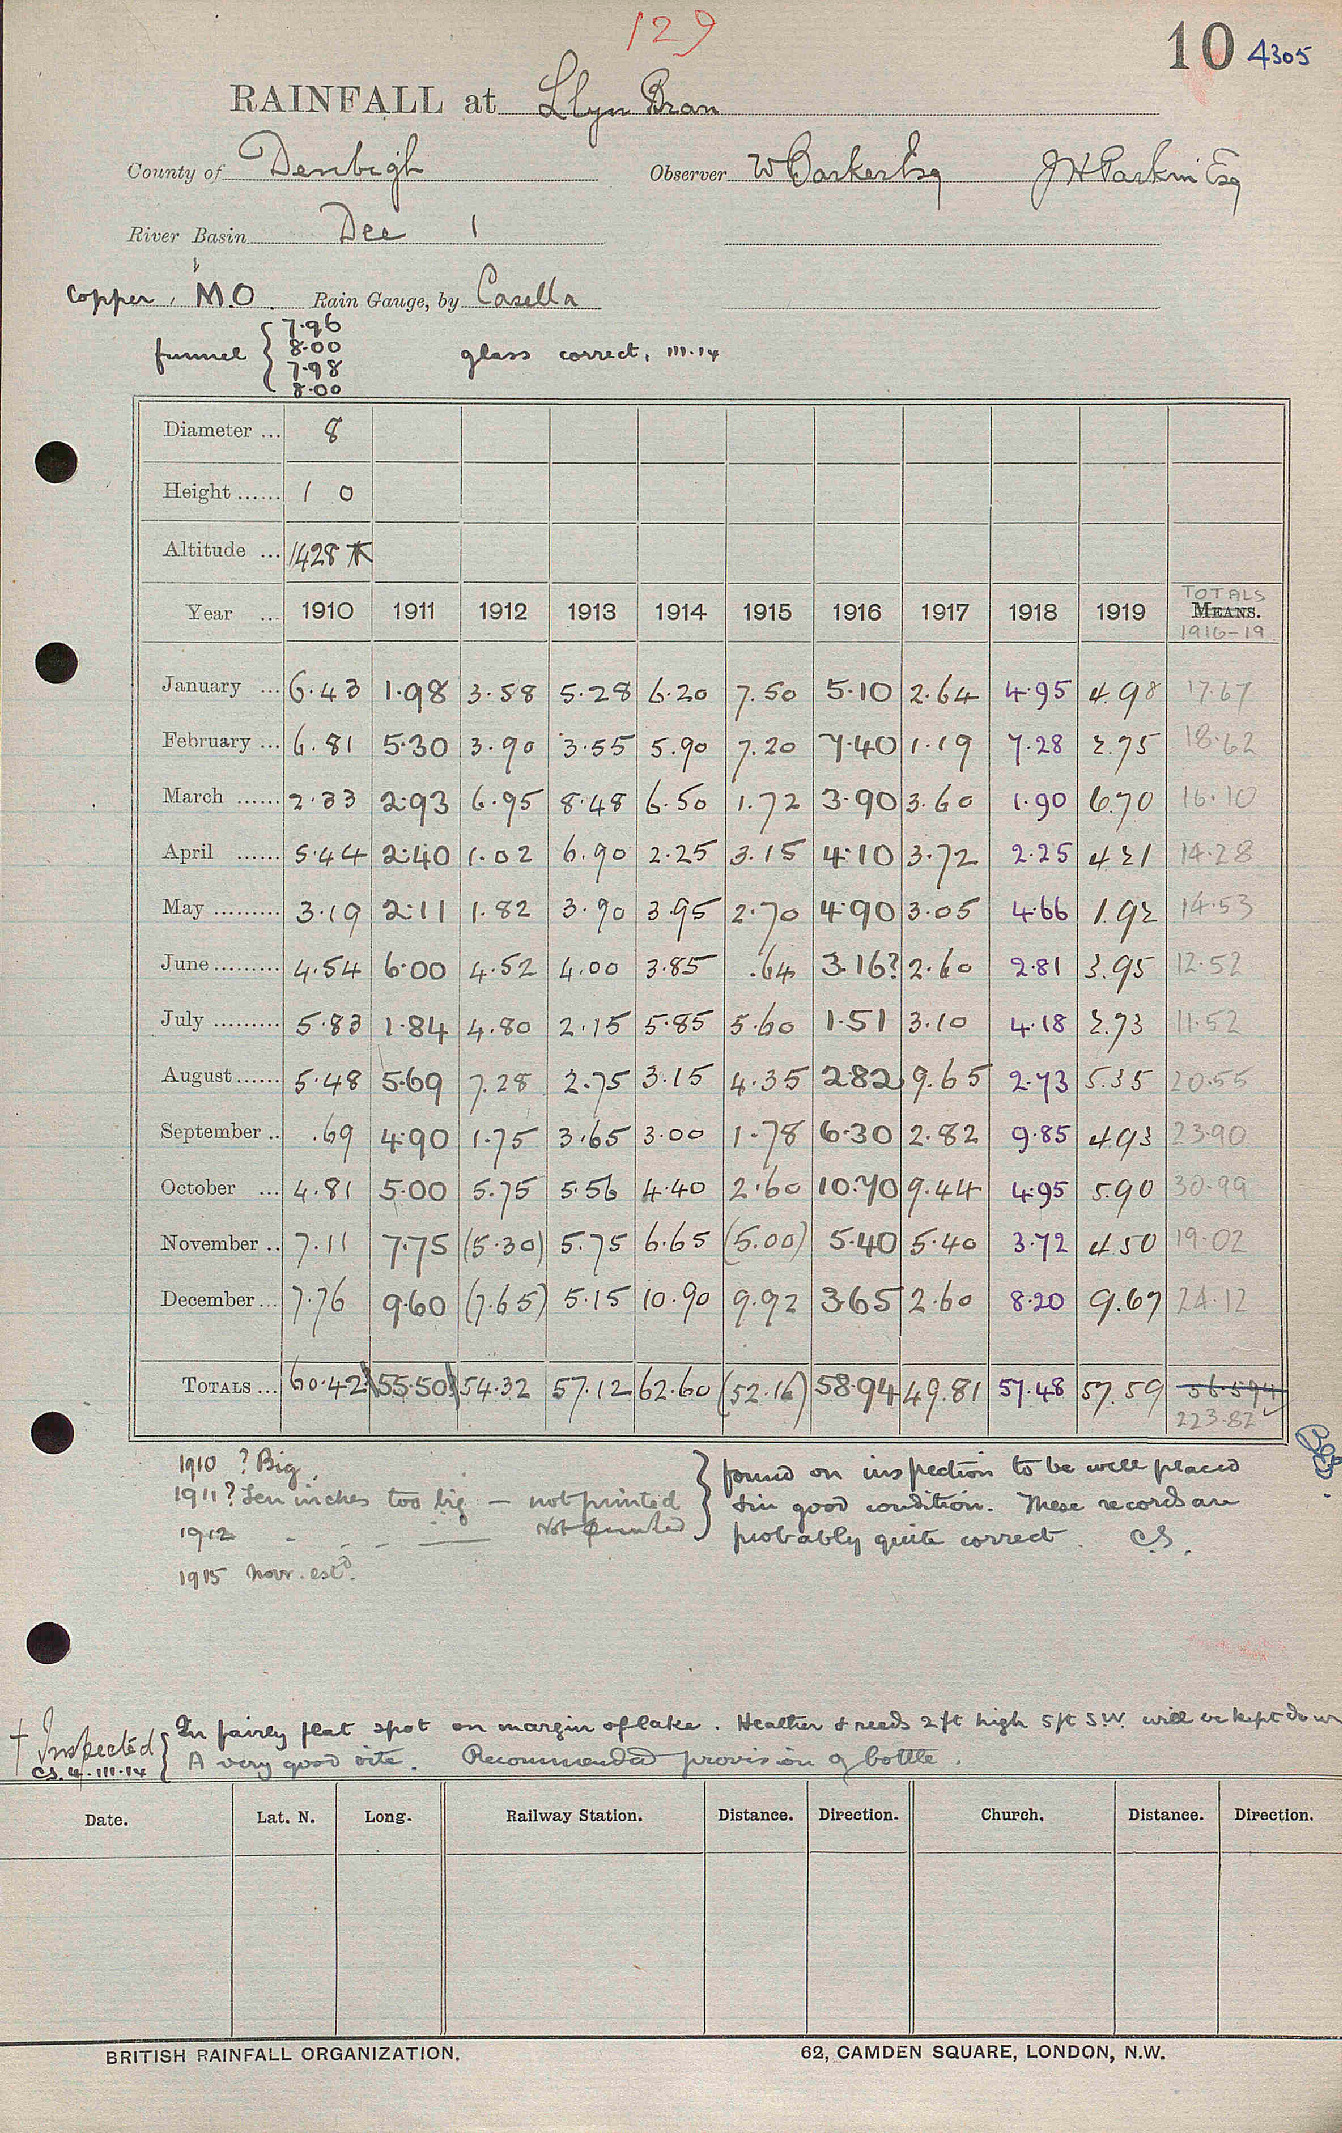 129
10 4305
RAINFALL at Llyn Bran
County of Denbigh Observer W Barker Esq J H Parkin Esq
River Basin Dee 1
Copper, M.O Rain Gauge, by Casella
funnel { 7.96 8.00 7.98 8.00 glass correct, III.14
Diameter ... 8
Height ...... 1 0
Altitude ... 1428
Year ... 1910 1911 1912 1913 1914 1915 1916 1917 1918 1919 TOTALS MEANS. 1916-19
January ... 6.43 1.98 3.58 5.28 6.20 7.50 5.10 2.64 4.95 4.98 17.67
February ... 6.81 5.30 3.90 3.55 5.90 7.20 7.40 1.19 7.28 2.75 18.62
March ...... 2.33 2.93 6.95 8.48 6.50 1.72 3.90 3.60 1.90 6.70 16.10
April ...... 5.44 2.40 1.02 6.90 2.25 3.15 4.10 3.72 2.25 4.21 14.28
May ......... 3.19 2.11 1.82 3.90 3.95 2.70 4.90 3.05 4.66 1.92 14.53
June ......... 4.54 6.00 4.52 4.00 3.85 .64 3.16? 2.60 2.81 3.95 12.52
July ......... 5.83 1.84 4.80 2.15 5.85 5.60 1.51 3.10 4.18 2.73 11.52
August ...... 5.48 5.69 7.28 2.75 3.15 4.35 2.82 9.65 2.73 5.35 20.55
September .. .69 4.90 1.75 3.65 3.00 1.78 6.30 2.82 9.85 4.93 23.90
October ... 4.81 5.00 5.75 5.56 4.40 2.60 10.70 9.44 4.95 5.90 30.99
November .. 7.11 7.75 (5.30) 5.75 6.65 (5.00) 5.40 5.40 3.72 4.50 19.02
December ... 7.76 9.60 (7.65) 5.15 10.90 9.92 3.65 2.60 8.20 9.67 24.12
TOTALS ... 60.42? 55.50? 54.32 57.12 62.60 (52.16) 58.94 49.81 57.48 57.59 56.594
223.82
1910 ? Big.
1911 ? Ten inches too big — not printed
1912 - - - — Not printed
} found on inspection to be well placed
& in good condition. These records are
probably quite correct. C.S.
1915 Novr. estd.
† Inspected C.S. 4.III.14
{ In fairly flat spot on margin of lake. Heather & reeds 2 ft high 5 ft S.W. will be kept down
A very good site. Recommended provision of bottle.
Date. Lat. N. Long. Railway Station. Distance. Direction. Church. Distance. Direction.
BRITISH RAINFALL ORGANIZATION. 62, CAMDEN SQUARE, LONDON, N.W.